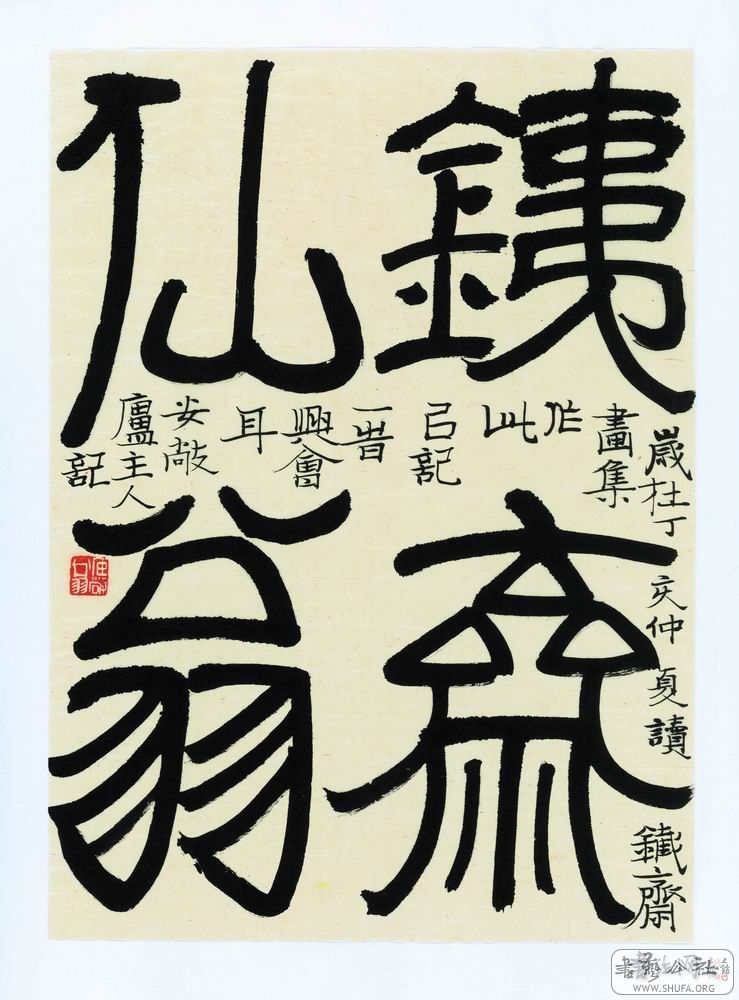 銕齋
仙翁
歲在丁亥仲夏讀鐵齋
畫集
作
此
㠯記
一旹
興會
耳
安敞
廬主人
記
書藝公社
WWW.SHUFA.ORG